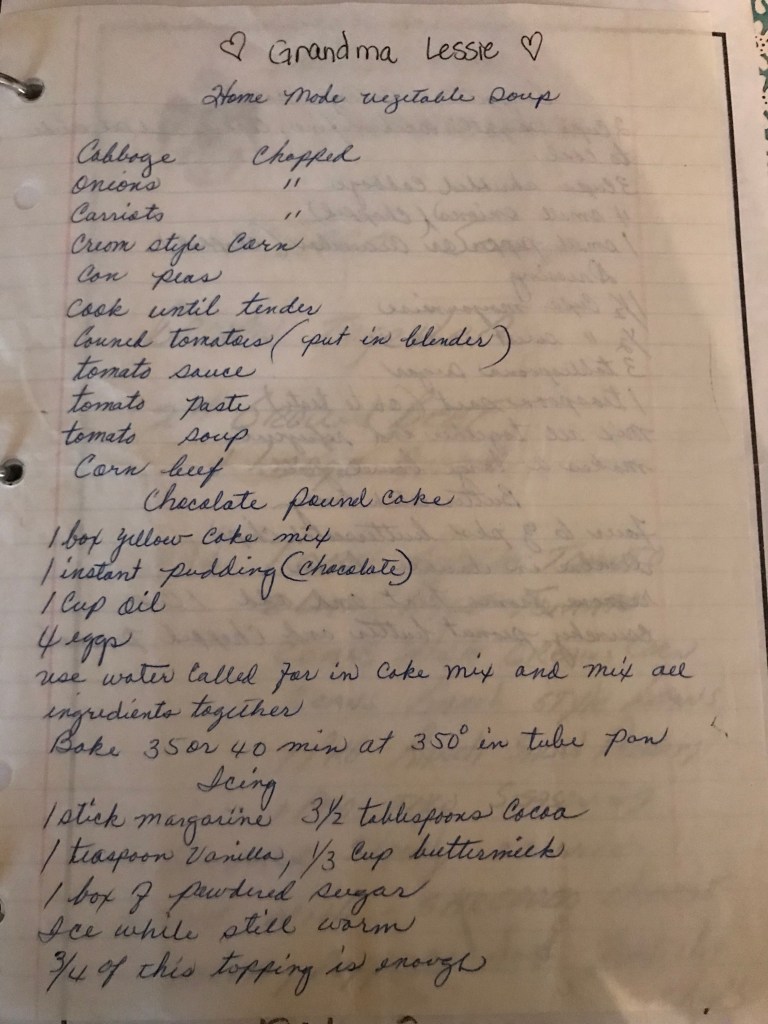 ♡ Grandma Lessie ♡
Home Made vegetable Soup
Cabbage Chopped
Onions "
Carriots "
Cream style Corn
Can peas
Cook until tender
Canned tomatoes (put in blender)
tomato sauce
tomato paste
tomato soup
Corn beef
Chocolate pound cake
1 box yellow cake mix
1 instant pudding (chocolate)
1 Cup oil
4 eggs
use water called for in cake mix and mix all
ingredients together
Bake 35 or 40 min at 350° in tube pan
Icing
1 stick margarine 3½ tablespoons Cocoa
1 teaspoon vanilla, 1/3 cup buttermilk
1 box of powdered sugar
Ice while still warm
3/4 of this topping is enough